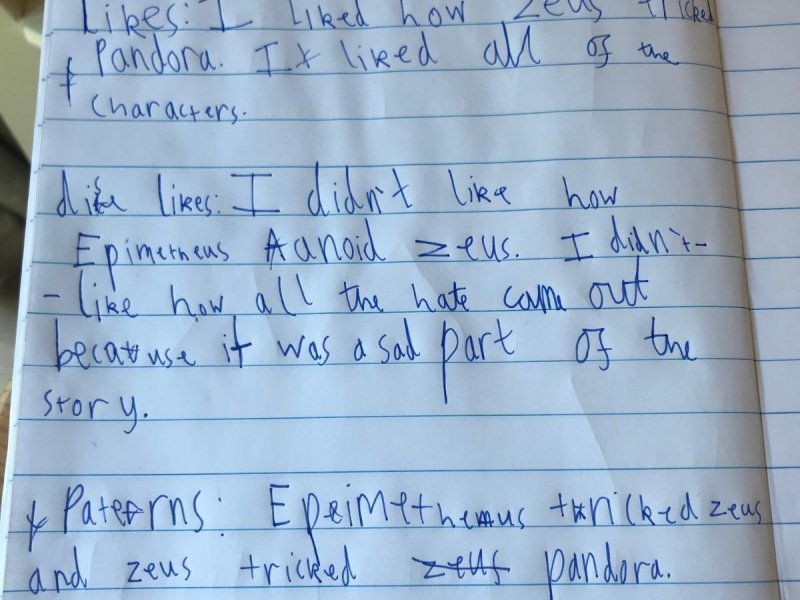 Likes: I liked how zeus tricked
Pandora. I liked all of the
characters.
dis likes: I didn't like how
Epimetheus anoid zeus. I didn't-
- like how all the hate came out
because it was a sad part of the
story.
Paterns: Epeimethemus tricked zeus
and zeus tricked zeus pandora.